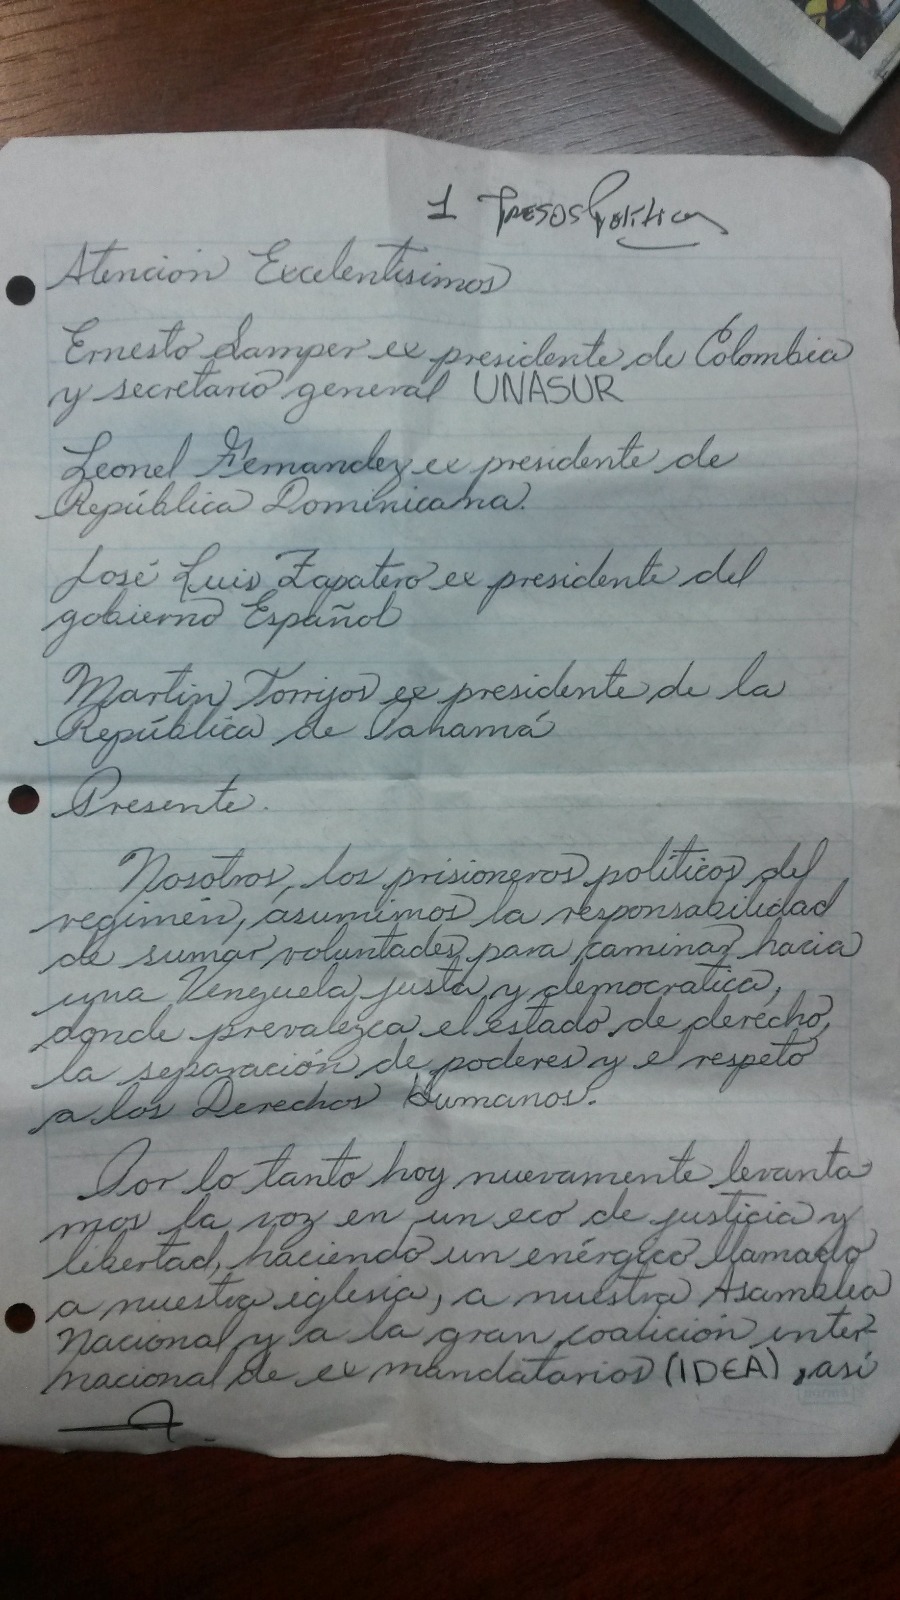 1 Presos Políticos
Atención Excelentisimos
Ernesto Samper ex presidente de Colombia
y secretario general UNASUR
Leonel Fernandez ex presidente de
República Dominicana.
José Luis Zapatero ex presidente del
gobierno Español
Martin Torrijos ex presidente de la
República de Panamá
Presente.
Nosotros, los prisioneros políticos del
regimén, asumimos la responsabilidad
de sumar voluntades para caminar hacia
una Venezuela justa y democratica,
donde prevalezca el estado de derecho,
la separación de poderes y el respeto
a los Derechos Humanos.
Por lo tanto hoy nuevamente levanta
mos la voz en un eco de justicia y
libertad, haciendo un enérgico llamado
a nuestra iglesia, a nuestra Asamblea
Nacional y a la gran coalición inter-
nacional de ex mandatarios (IDEA), así